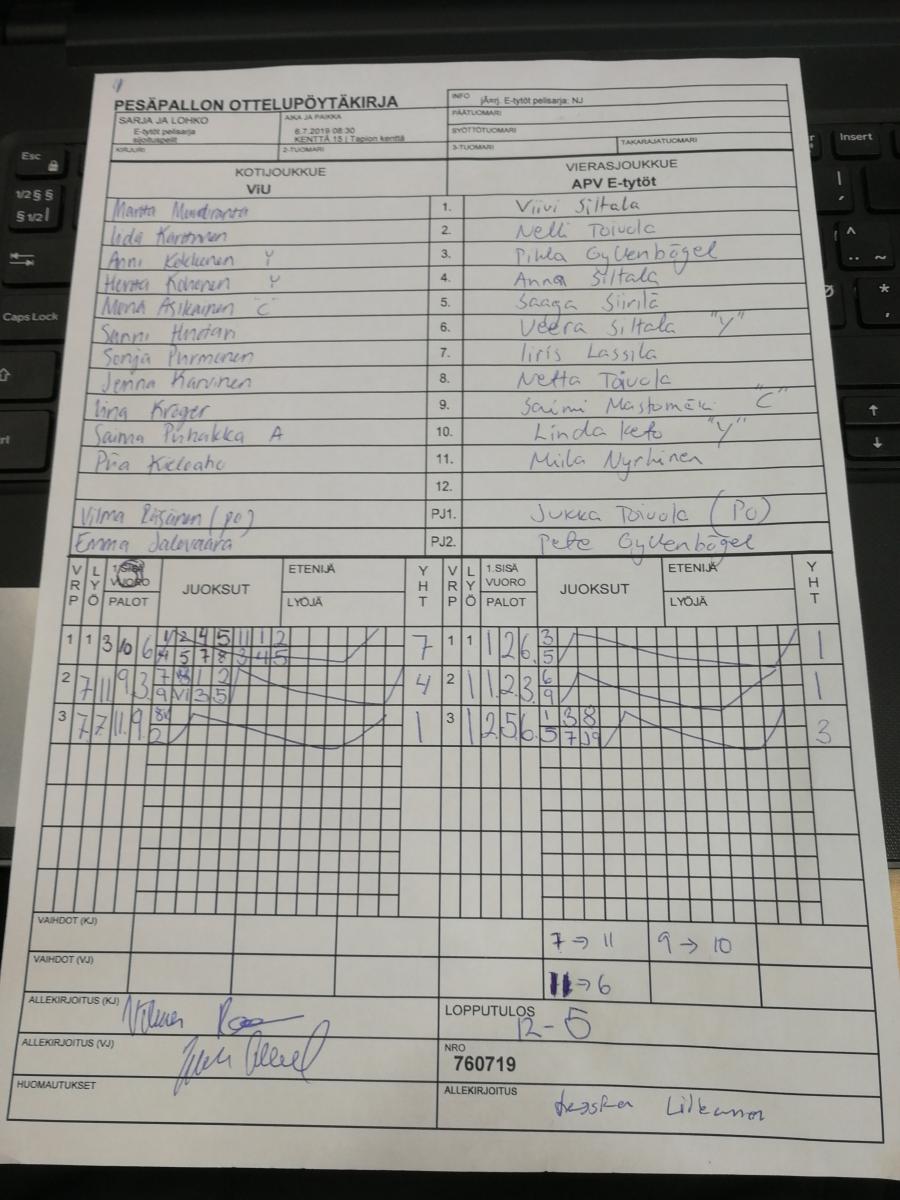 PESÄPALLON OTTELUPÖYTÄKIRJA
INFO jÄrj. E-tytöt pelisarja: NJ
PÄÄTUOMARI
SARJA JA LOHKO
E-tytöt pelisarja
sijoituspelit
AIKA JA PAIKKA
6.7.2019 08:30
KENTTÄ 15 | Tapion kenttä
SYÖTTÖTUOMARI
KIRJURI 2-TUOMARI 3-TUOMARI TAKARAJATUOMARI
KOTIJOUKKUE VIERASJOUKKUE
ViU APV E-tytöt
1. Viivi Siltala
2. Nelli Toivola
Anni Kekkonen Y 3. Pihla Gyllenbögel
Hertta Y 4. Anna Siltala
Mona Asikainen "C" 5. Saaga Siirilä
Sanni 6. Veera Siltala "Y"
Sonja Purmonen 7. Iiris Lassila
Jenna Karvinen 8. Netta Toivola
Iina Kröger 9. Saimi Mastomäki "C"
Saima Piihakka A 10. Linda Keto "Y"
Piia 11. Miila Nyrhinen
12.
Vilma Räsänen (po) PJ1. Jukka Toivola (PO)
Emma Jalovaara PJ2. Pete Gyllenbögel
VRP LYÖ 1.SISÄ VUORO PALOT JUOKSUT ETENIJÄ LYÖJÄ YHT VRP LYÖ 1.SISÄ VUORO PALOT JUOKSUT ETENIJÄ LYÖJÄ YHT
1 1 3 10 6 1 2 4 5 11 1 2 7 1 1 1 2 6 3 1
4 5 7 8 3 4 5 5
2 7 11 9 3 7 8 1 2 4 2 1 1 2 3 6 1
9 11 3 5 9
3 7 7 11 9 8 1 3 1 2 5 6 1 3 8 3
2 5 7 9
VAIHDOT (KJ) 7 → 11 9 → 10
VAIHDOT (VJ) 11 → 6
ALLEKIRJOITUS (KJ)
LOPPUTULOS 12-5
ALLEKIRJOITUS (VJ)
NRO
760719
HUOMAUTUKSET
ALLEKIRJOITUS